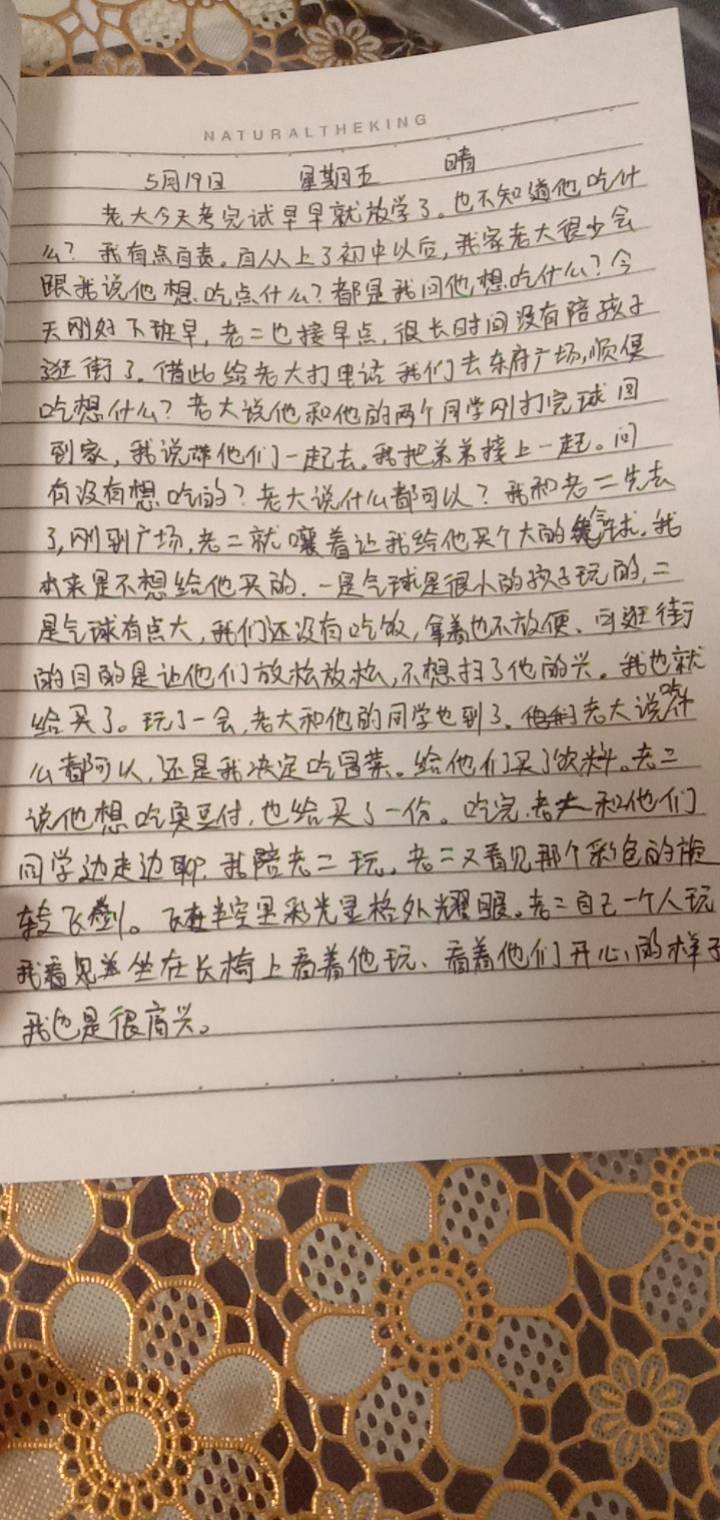 NATURALTHEKING
5月19日 星期五 晴
老大今天考完试早早就放学了。也不知道他吃什
么？我有点自责。自从上了初中以后，我家老大很少会
跟我说他想吃点什么？都是我问他想吃什么？今
天刚好下班早，老二也接早点，很长时间没有陪孩子
逛街了。借此给老大打电话我们去东府广场，顺便
吃想什么？老大说他和他的两个同学刚打完球回
到家，我说带他们一起去。我把弟弟接上一起。问
有没有想吃的？老大说什么都可以？我和老二先去
了，刚到广场，老二就嚷着让我给他买个大的气球。我
本来是不想给他买的，一是气球是很小的孩子玩的，二
是气球有点大，我们还没有吃饭，拿着也不放便、可逛街
的目的是让他们放松放松，不想扫了他的兴。我也就
给买了。玩了一会，老大和他的同学也到了。老大说吃什
么都可以，还是我决定吃冒菜。给他们买了饮料。老二
说他想吃臭豆付，也给买了一份。吃完，老大和他们
同学边走边聊，我陪老二玩，老二又看见那个彩色的旋
转飞。飞在半空里彩光显格外耀眼。老二自己一个人玩
我坐在长椅上看着他玩、看着他们开心的样子
我也是很高兴。